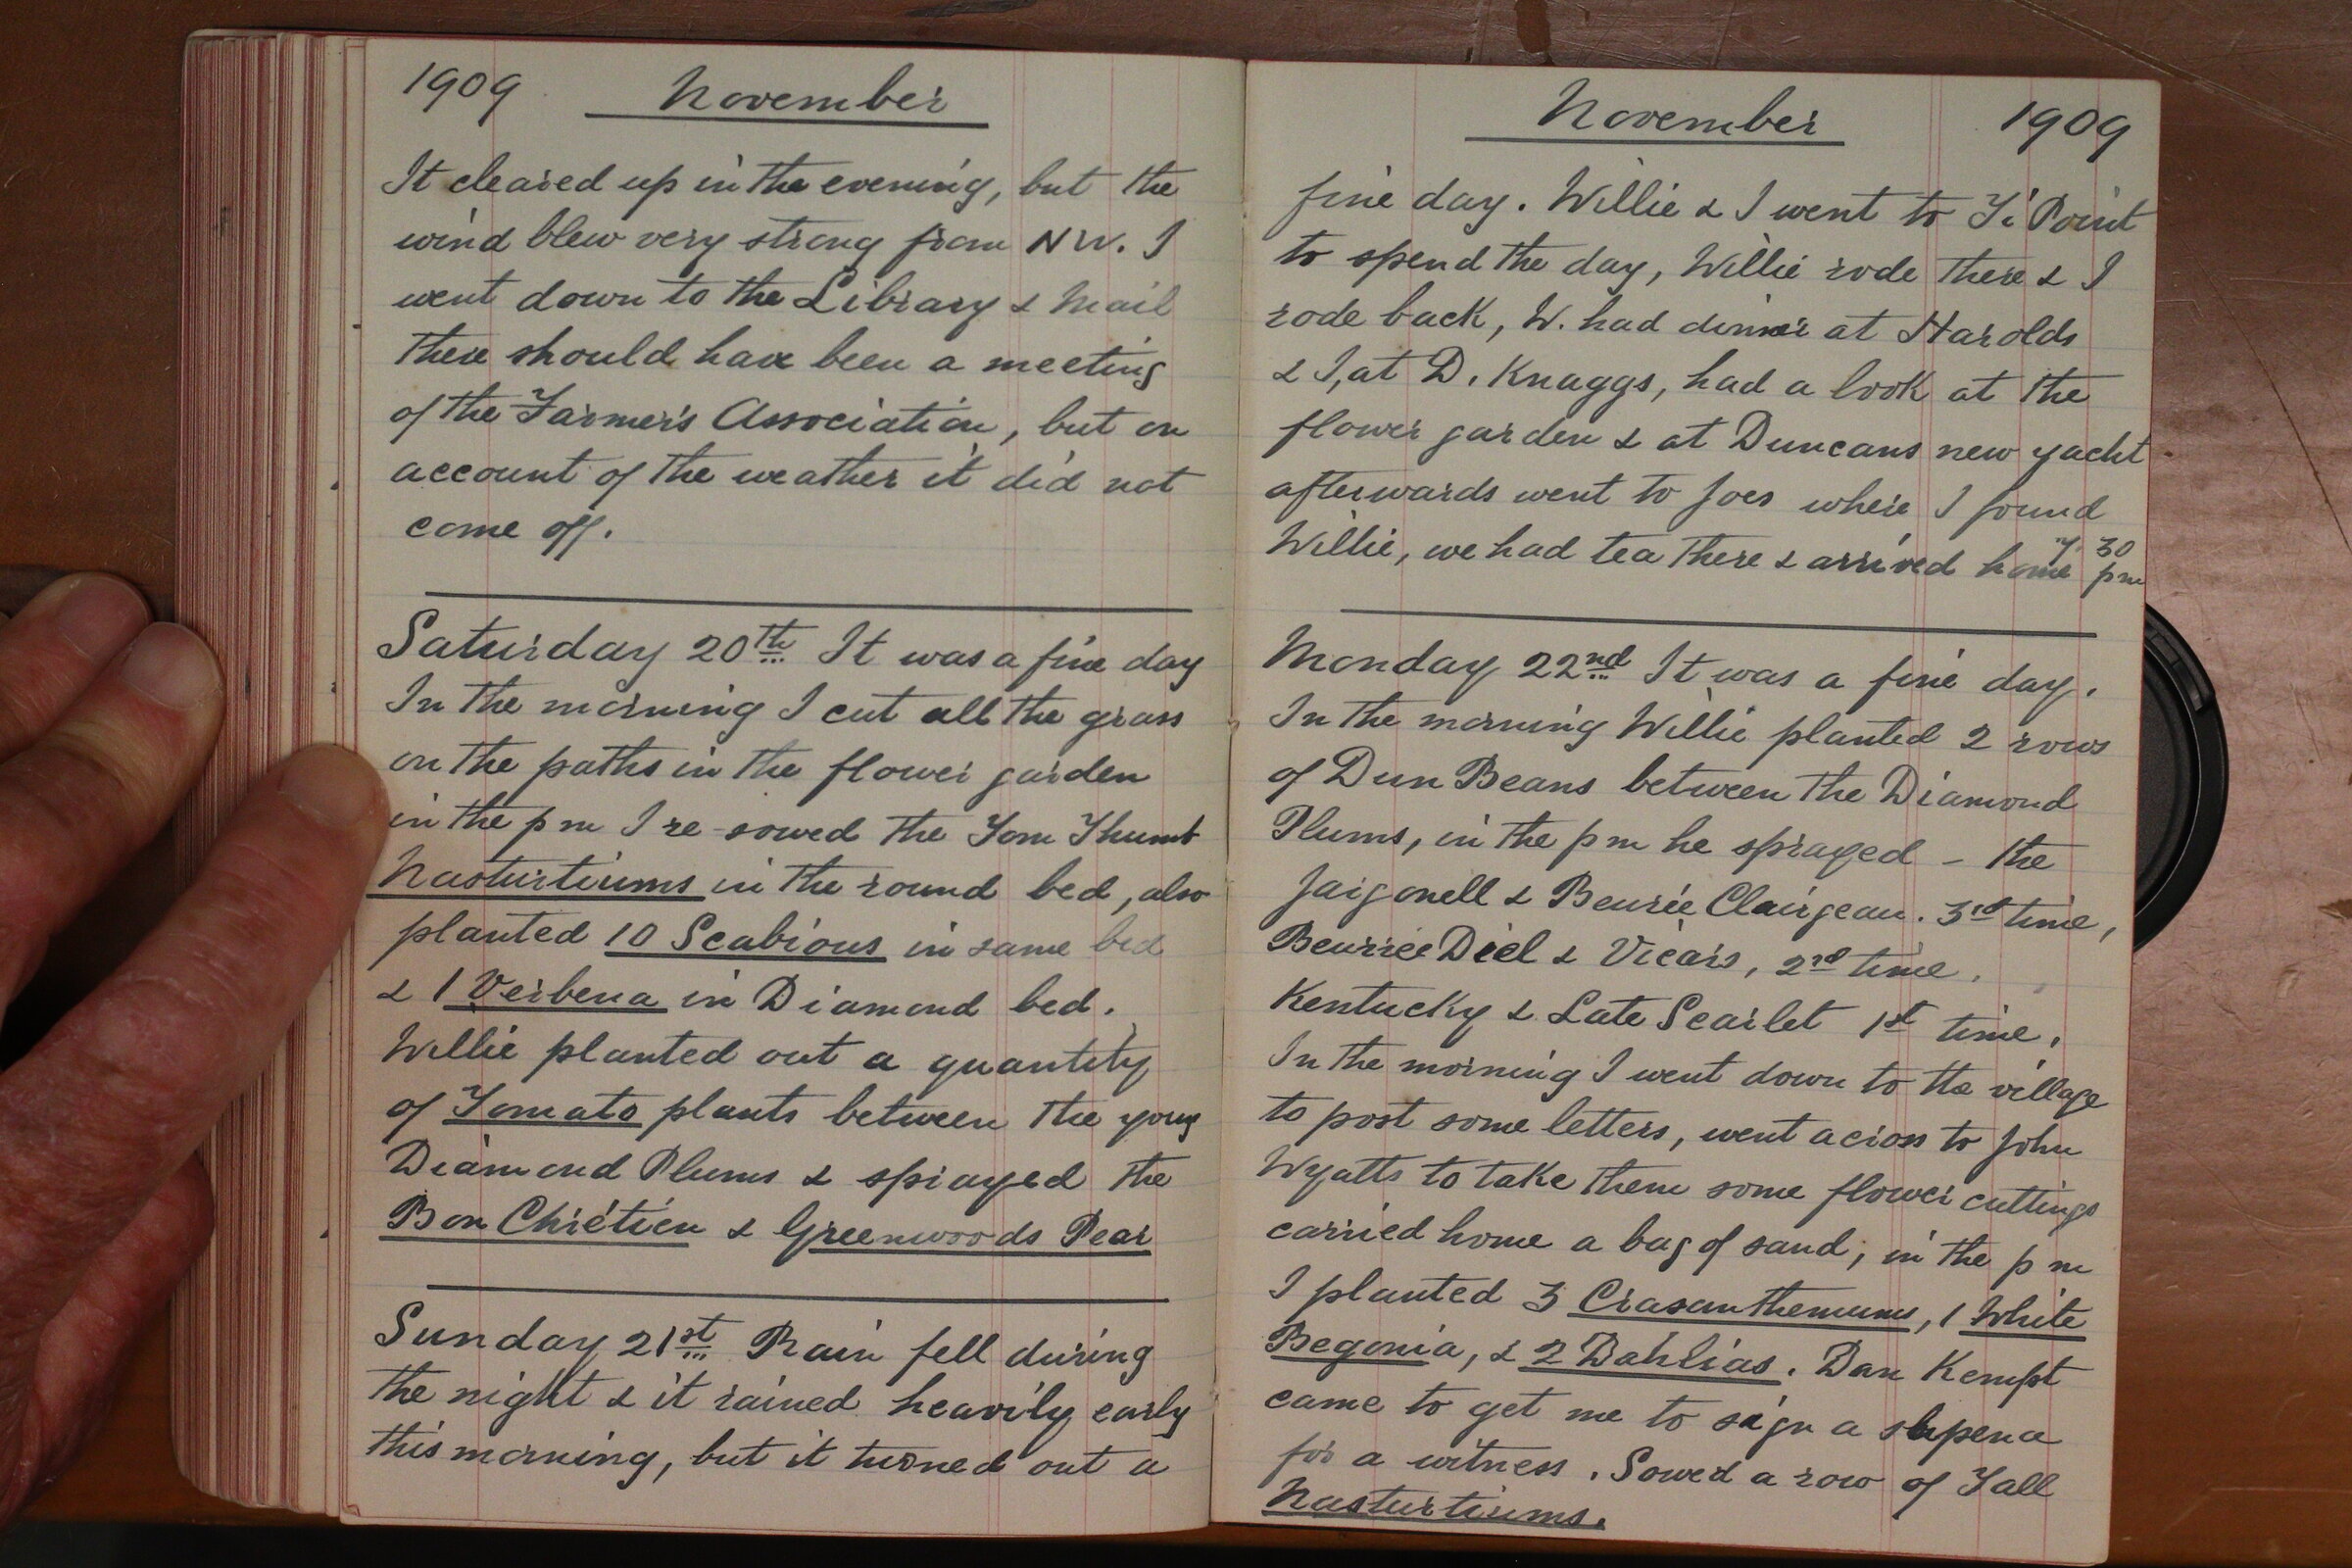 1909 November
It cleared up in the evening, but the
wind blew very strong from NW. I
went down to the Library & Mail
there should have been a meeting
of the Farmer's Association, but on
account of the weather it did not
come off.
Saturday 20th It was a fine day
In the morning I cut all the grass
on the paths in the flower garden
in the pm I re-sowed the Tom Thumb
Nasturtiums in the round bed, also
planted 10 Scabious in same bed
& 1 Verbena in Diamond bed.
Willie planted out a quantity
of Tomato plants between the young
Diamond Plums & sprayed the
Bon Chrétien & Greenwoods Pear
Sunday 21st Rain fell during
the night & it rained heavily early
this morning, but it turned out a
November 1909
fine day. Willie & I went to Ti Point
to spend the day, Willie rode there & I
rode back, W. had dinner at Harolds
& I, at D. Knaggs, had a look at the
flower garden & at Duncans new yacht
afterwards went to Joes where I found
Willie, we had tea there & arrived home 7.30 pm
Monday 22nd It was a fine day.
In the morning Willie planted 2 rows
of Dun Beans between the Diamond
Plums, in the pm he sprayed - the
Jargonell & Beurrée Clairgeau. 3rd time,
Beurrée Diel & Vicars, 2nd time.
Kentucky & Late Scarlet 1st time.
In the morning I went down to the village
to post some letters, went across to John
Wyatts to take them some flower cuttings
carried home a bag of sand, in the pm
I planted 3 Crasanthemums, 1 White
Begonia, & 2 Dahlias. Dan Kempt
came to get me to sign a supena
for a witness. Sowed a row of Tall
Nasturtiums.